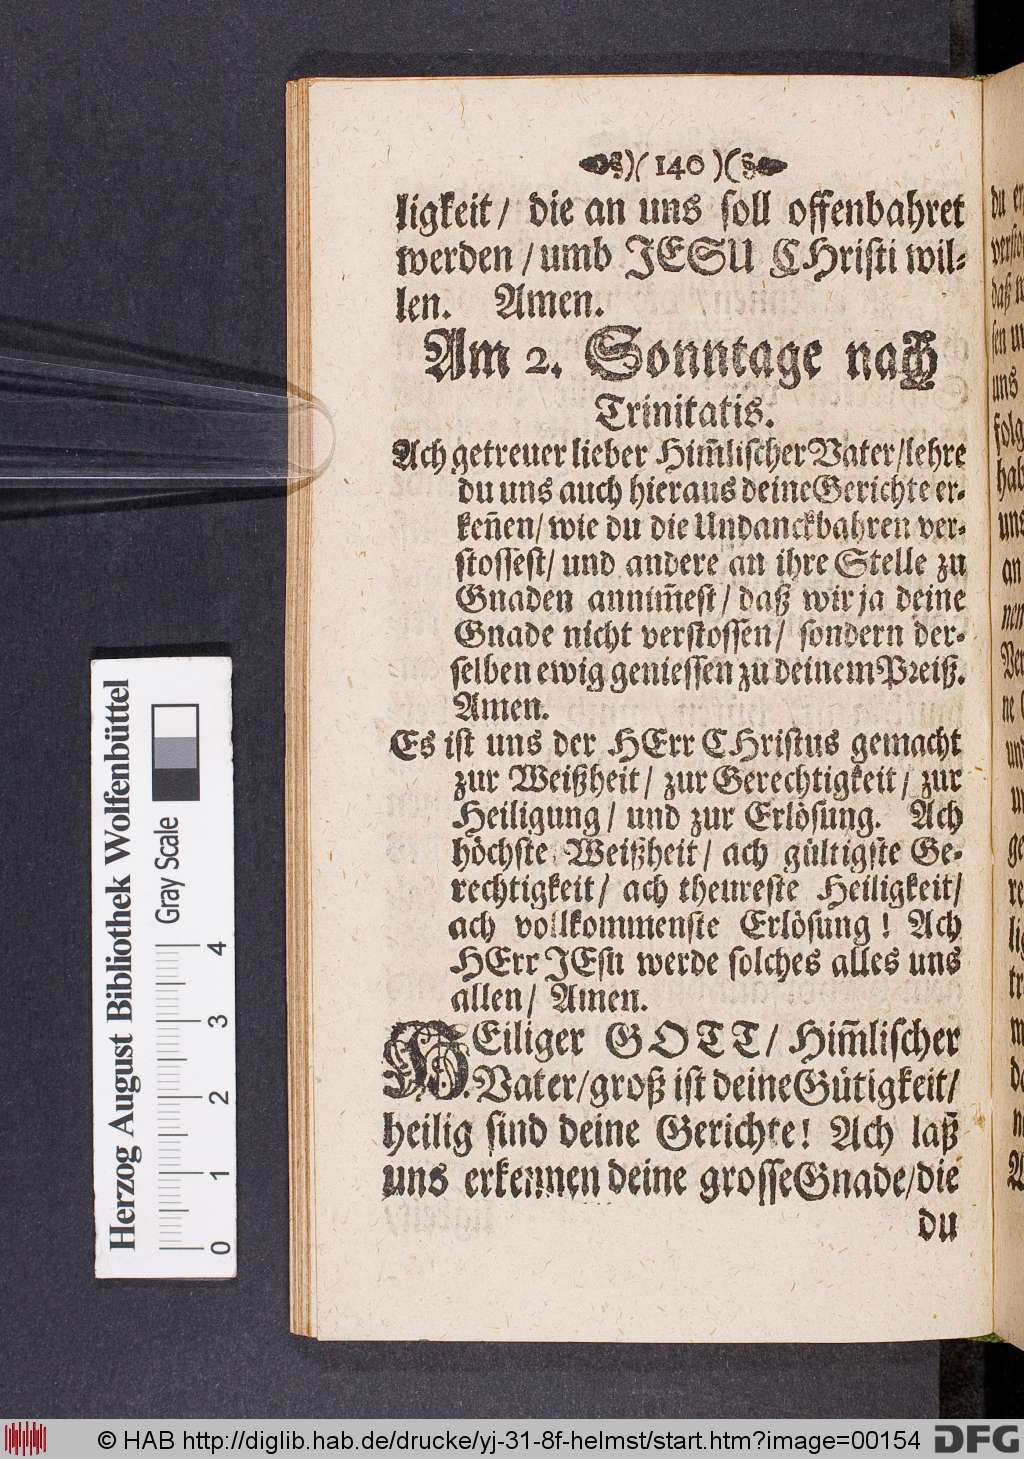 )( 140 )(
ligkeit / die an uns soll offenbahret
werden / umb JESU CHristi wil-
len. Amen.
Am 2. Sonntage nach
Trinitatis.
Ach getreuer lieber Him̃lischer Vater / lehre
du uns auch hieraus deine Gerichte er-
ken̄en / wie du die Undanckbahren ver-
stossest / und andere an ihre Stelle zu
Gnaden annim̃est / daß wir ja deine
Gnade nicht verstossen / sondern der-
selben ewig geniessen zu deinem Preiß.
Amen.
Es ist uns der HErr CHristus gemacht
zur Weißheit / zur Gerechtigkeit / zur
Heiligung / und zur Erlösung. Ach
höchste Weißheit / ach gültigste Ge-
rechtigkeit / ach theureste Heiligkeit /
ach vollkommenste Erlösung ! Ach
HErr JEsu werde solches alles uns
allen / Amen.
HEiliger GOTT / Him̃lischer
Vater / groß ist deine Gütigkeit /
heilig sind deine Gerichte ! Ach laß
uns erkennen deine grosse Gnade / die
du
Herzog August Bibliothek Wolfenbüttel
Gray Scale
0 1 2 3 4
© HAB http://diglib.hab.de/drucke/yj-31-8f-helmst/start.htm?image=00154
DFG